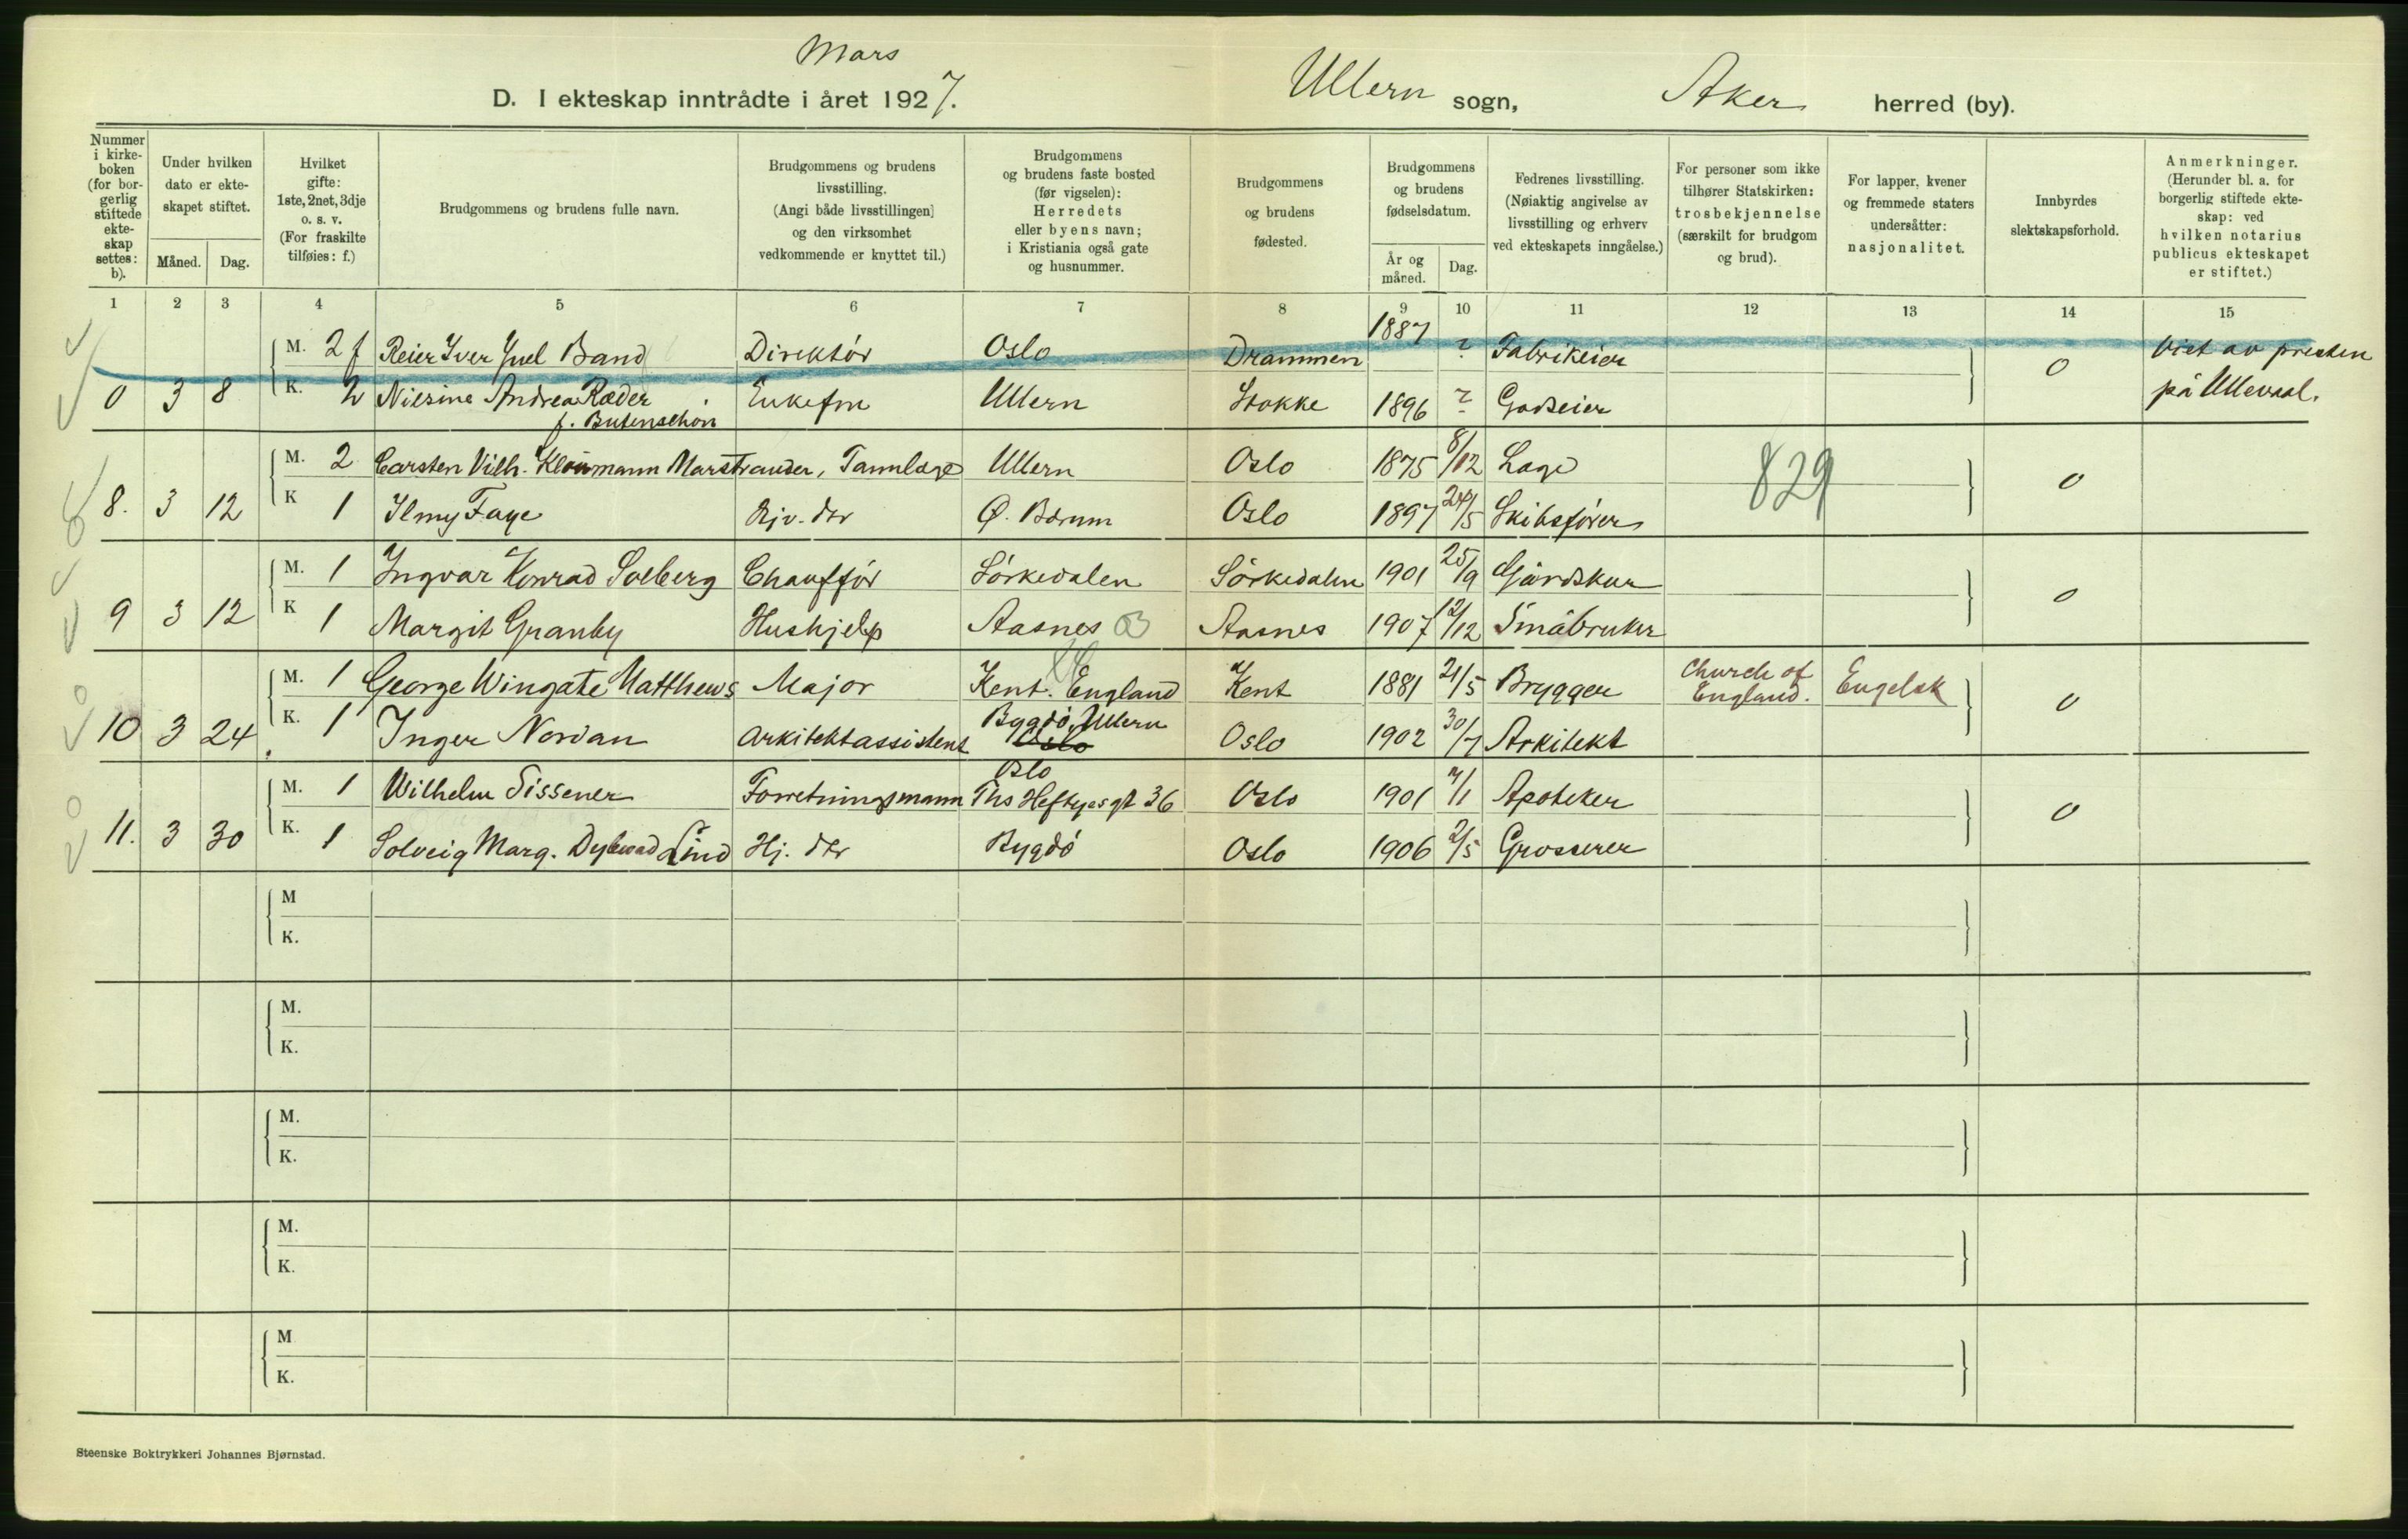 Mars
D. I ekteskap inntrådte i året 1927.
Ullern sogn, Aker herred (by).
Nummer i kirke-boken (for bor-gerlig stiftede ekte-skap settes: b).
Under hvilken dato er ekte-skapet stiftet.
Måned. Dag.
Hvilket gifte: 1ste, 2net, 3dje o. s. v. (For fraskilte tilføies: f.)
Brudgommens og brudens fulle navn.
Brudgommens og brudens livsstilling. (Angi både livsstillingen] og den virksomhet vedkommende er knyttet til.)
Brudgommens og brudens faste bosted (før vigselen): Herredets eller byens navn; i Kristiania også gate og husnummer.
Brudgommens og brudens fødested.
Brudgommens og brudens fødselsdatum.
År og måned. Dag.
Fedrenes livsstilling. (Nøiaktig angivelse av livsstilling og erhverv ved ekteskapets inngåelse.)
For personer som ikke tilhører Statskirken: trosbekjennelse (særskilt for brudgom og brud).
For lapper, kvener og fremmede staters undersåtter: nasjonalitet.
Innbyrdes slektskapsforhold.
Anmerkninger. (Herunder bl. a. for borgerlig stiftede ekte-skap: ved hvilken notarius publicus ekteskapet er stiftet.)
1 2 3 4 5 6 7 8 9 10 11 12 13 14 15
M. 2 f Reier Iver Juel Band Direktör Oslo Drammen 1887 ? Fabrikeier 0 Viet av presten
0 3 8 K. 2 Nilsine Andrea Ræder Enkefru Ullern Stokke 1896 ? Godseier på Ullevaal.
f. Butenschön
M. 2 Carsten Vilh. Kloumann Marstrander, Tannlæge Ullern Oslo 1875 8/12 Læge 829 0
8. 3 12 K 1 Ilmy Faye Ø. Bærum Oslo 1897 24/5 Skibsförer
M. 1 Ingvar Konrad Solberg Chauffför Sörkedalen Sörkedalen 1901 25/9 0
9 3 12 K 1 Margit Granby Hushjelp Aasnes Aasnes 1907 12/12 Småbruker
M. 1 George Wingate Matthews Major Kent. England Kent 1881 21/5 Brygger Church of England. Engelsk 0
Bygdö, Ullern
10 3 24 K. 1 Inger Arkitektassistent Oslo Oslo 1902 30/7 Arkitekt
Oslo
M. 1 Wilhelm Sissener Forretningsmann Ths Heftyesgt 36 Oslo 1901 7/1 Apoteker 0
11. 3 30 K. 1 Solveig Marg. Dybwad Lind Hj. dtr Bygdö Oslo 1906 2/5 Grosserer
M
K.
M.
K.
M.
K.
M.
K.
M
K.
Steenske Boktrykkeri Johannes Bjørnstad.